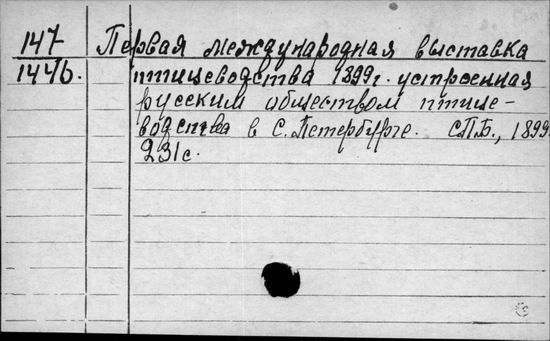 147 Первая международная выставка
1446. птицеводства 1899г. устроенная
русским обществом птице-
водства в С. Петербурге. С.П.Б., 1899
231с.